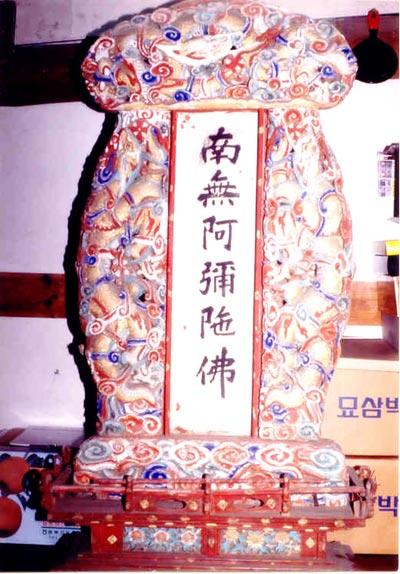 南無阿彌陁佛
묘삼박
박